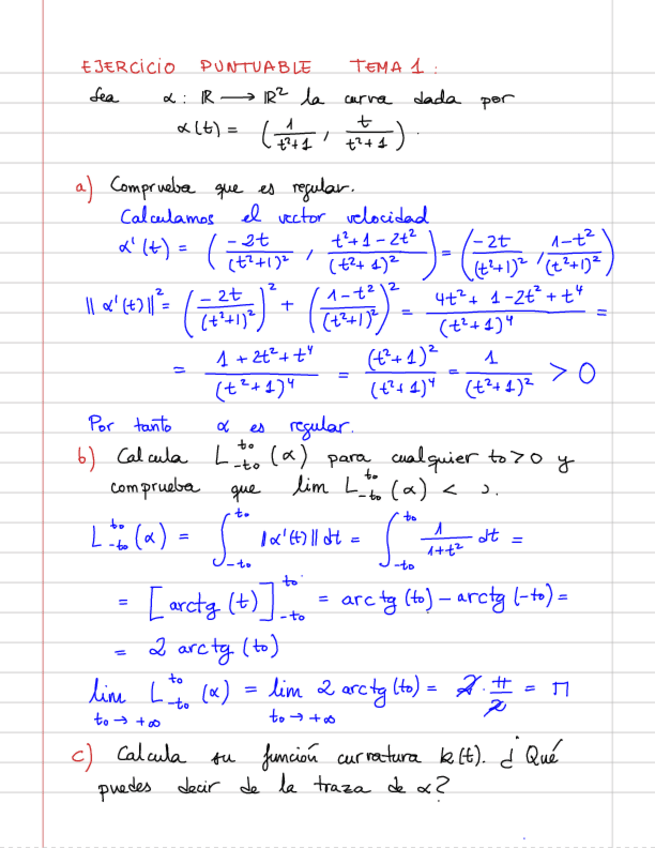 EJERCICIO PUNTUABLE TEMA 1:
Sea α: ℝ → ℝ² la curva dada por
α(t) = (1/(t²+1), t/(t²+1)).
a) Comprueba que es regular.
Calculamos el vector velocidad
α'(t) = (-2t/(t²+1)², (t²+1-2t²)/(t²+1)²) = (-2t/(t²+1)², (1-t²)/(t²+1)²)
||α'(t)||² = (-2t/(t²+1)²)² + ((1-t²)/(t²+1)²)² = (4t²+1-2t²+t⁴)/(t²+1)⁴ =
= (1+2t²+t⁴)/(t²+1)⁴ = (t²+1)²/(t²+1)⁴ = 1/(t²+1)² > 0
Por tanto α es regular.
b) Calcula L_{-t₀}^{t₀}(α) para cualquier t₀>0 y
comprueba que lim L_{-t₀}^{t₀}(α) <
L_{-t₀}^{t₀}(α) = ∫_{-t₀}^{t₀} ||α'(t)|| dt = ∫_{-t₀}^{t₀} 1/(1+t²) dt =
= [arctg(t)]_{-t₀}^{t₀} = arctg(t₀) - arctg(-t₀) =
= 2 arctg(t₀)
lim_{t₀→+∞} L_{-t₀}^{t₀}(α) = lim_{t₀→+∞} 2 arctg(t₀) = 2·π/2 = π
c) Calcula su función curvatura k(t). ¿Qué
puedes decir de la traza de α?